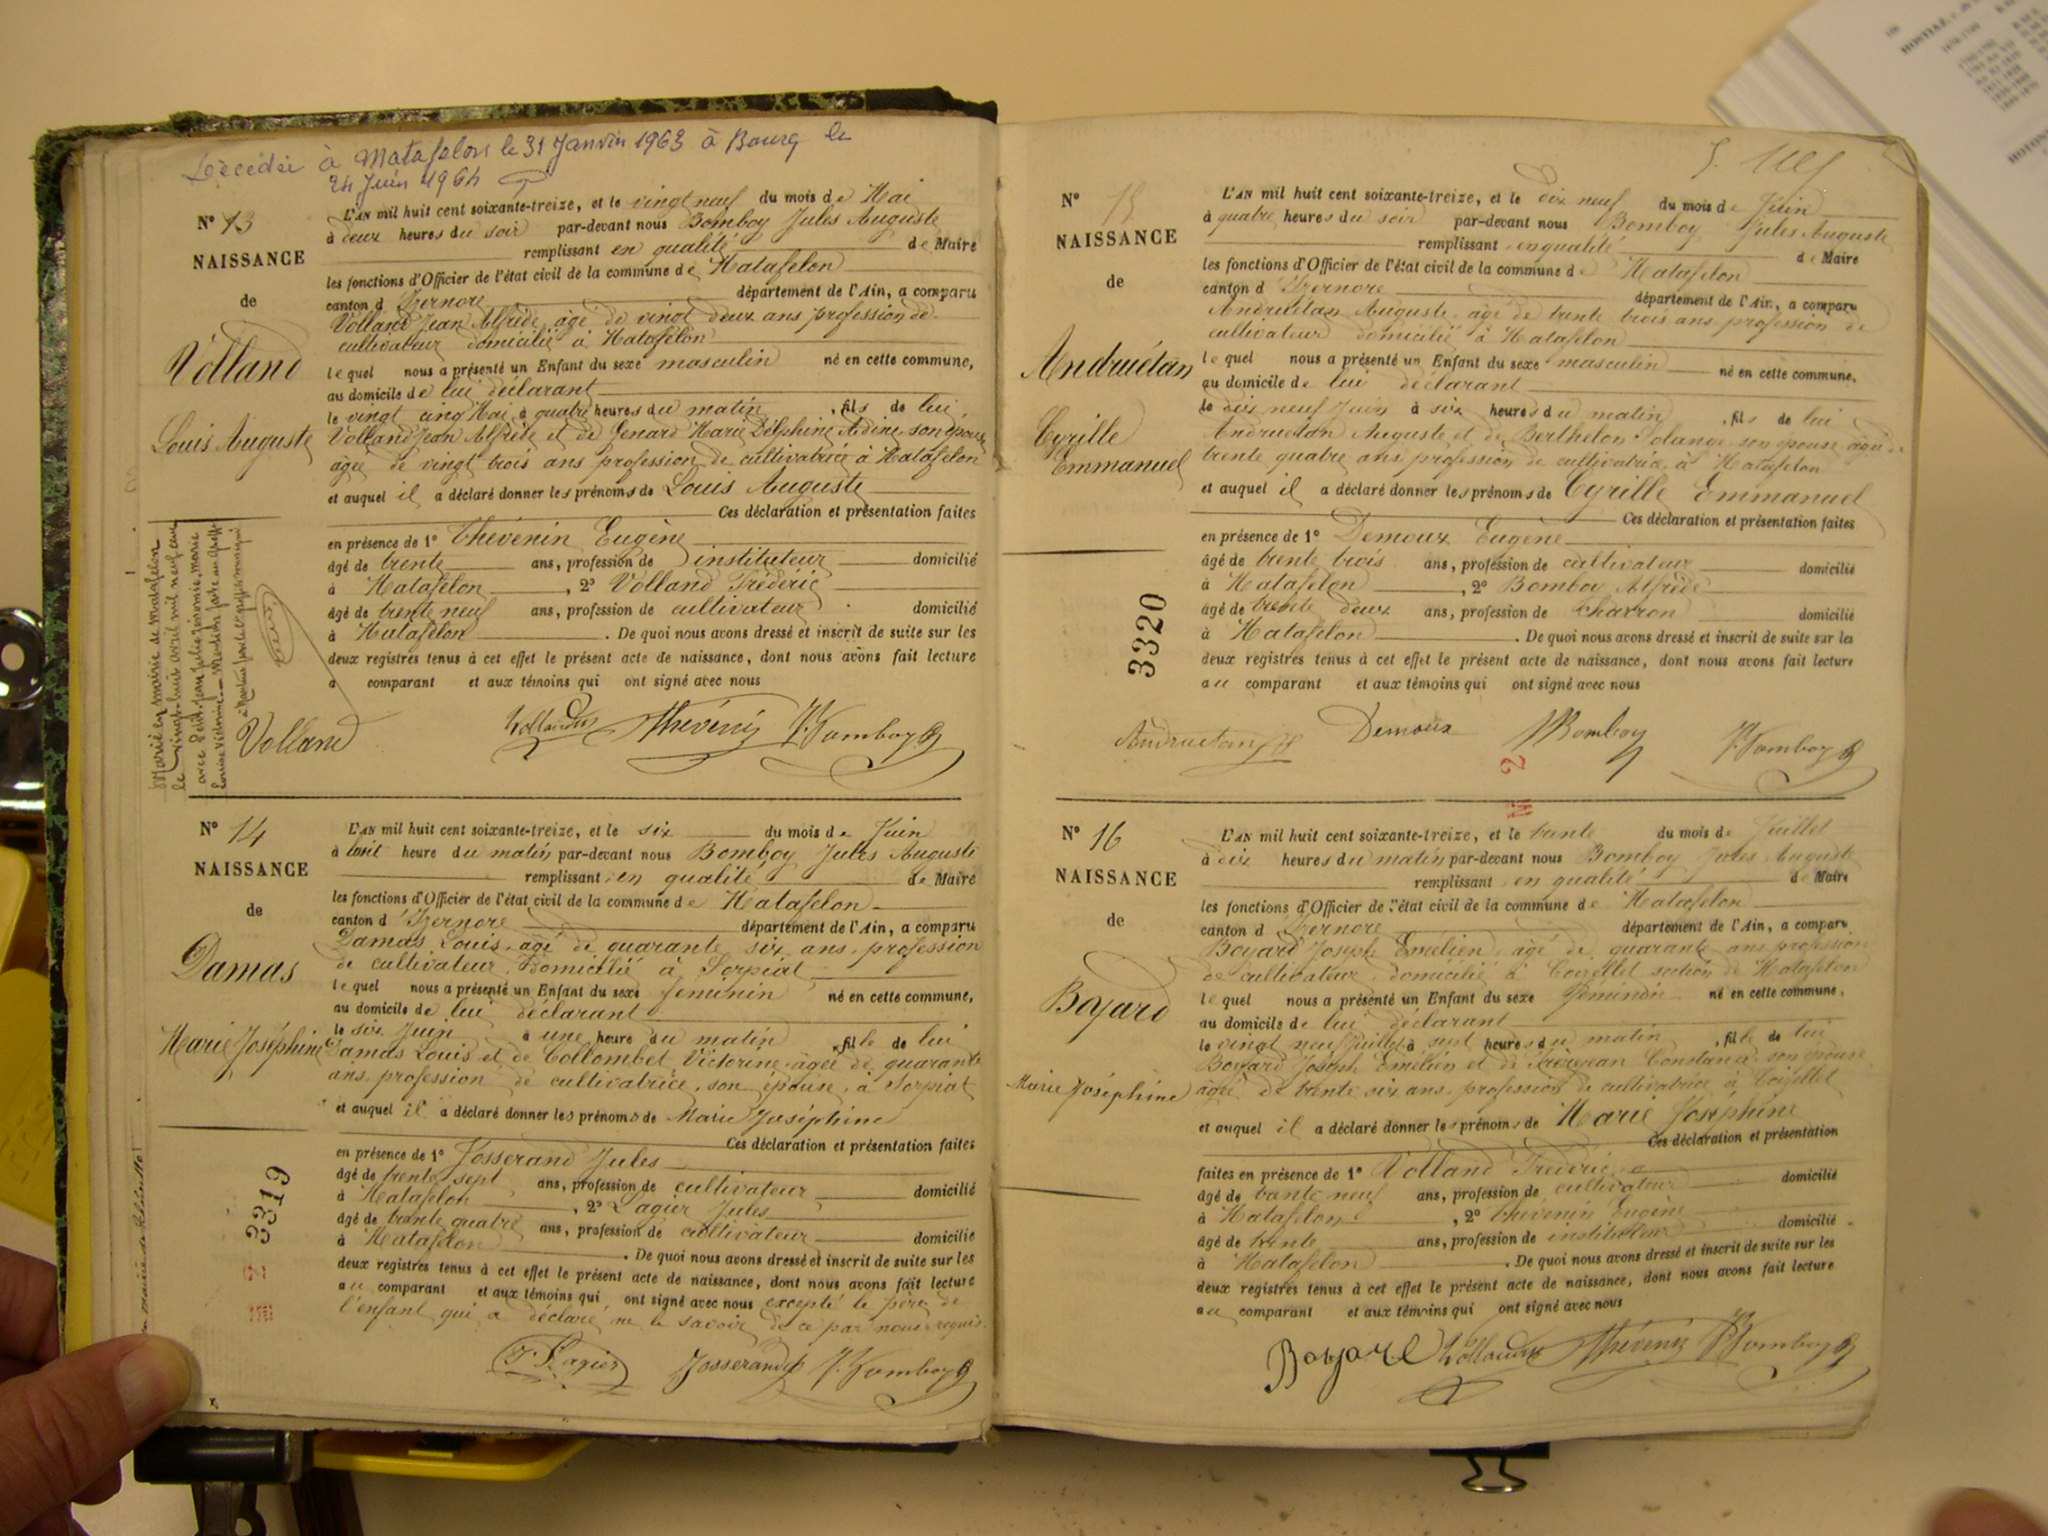 Décédée à Matafelon le 31 Janvier 1963 à Bourg le
24 Juin 1964
N° 13
NAISSANCE
de
Volland
Louis Auguste
L'AN mil huit cent soixante-treize, et le vingt neuf du mois de Mai
à deux heures du soir par-devant nous Bomboy Jules Auguste
remplissant en qualité de Maire
les fonctions d'Officier de l'état civil de la commune de Matafelon
canton d'Izernore département de l'Ain, a comparu
Volland Jean Alfrède âgé de vingt deux ans profession de
cultivateur domicilié à Matafelon
lequel nous a présenté un Enfant du sexe masculin né en cette commune,
au domicile de lui déclarant
le vingt cinq Mai à quatre heures du matin, fils de lui
Volland Jean Alfrède et de Genard Marie Delphine Adine son épouse
âgée de vingt trois ans profession de cultivatrice à Matafelon
et auquel il a déclaré donner les prénoms de Louis Auguste
Ces déclaration et présentation faites
en présence de 1° Thévenin Eugène
âgé de trente ans, profession de instituteur domicilié
à Matafelon, 2° Volland Frédéric
âgé de trente neuf ans, profession de cultivateur domicilié
à Matafelon. De quoi nous avons dressé et inscrit de suite sur les
deux registres tenus à cet effet le présent acte de naissance, dont nous avons fait lecture
a comparant et aux témoins qui ont signé avec nous
Marié en mairie de Matafelon
le vingt huit avril mil neuf cent
avec
Volland Volland Thévenin J. Bomboy
N° 14
NAISSANCE
de
Damas
Marie Joséphine
3319
L'AN mil huit cent soixante-treize, et le six du mois de Juin
à heure du matin par-devant nous Bomboy Jules Auguste
remplissant en qualité de Maire
les fonctions d'Officier de l'état civil de la commune de Matafelon
canton d'Izernore département de l'Ain, a comparu
Damas Louis âgé de quarante six ans, profession
de cultivateur domicilié à Sorpiat
lequel nous a présenté un Enfant du sexe féminin né en cette commune,
au domicile de lui déclarant
le six Juin à une heure du matin, fille de lui
Damas Louis et de Collombet Victorine âgée de quarante
ans, profession de cultivatrice, son épouse, à Sorpiat
et auquel il a déclaré donner les prénoms de Marie Joséphine
Ces déclaration et présentation faites
en présence de 1° Josserand Jules
âgé de trente sept ans, profession de cultivateur domicilié
à Matafelon, 2° Lagier Jules
âgé de trente quatre ans, profession de cultivateur domicilié
à Matafelon. De quoi nous avons dressé et inscrit de suite sur les
deux registres tenus à cet effet le présent acte de naissance, dont nous avons fait lecture
au comparant et aux témoins qui ont signé avec nous excepté le père de
l'enfant qui a déclaré ne le savoir de ce par nous requis.
J. Lagier Josserand J. Bomboy
N° 15
NAISSANCE
de
Andruétan
Cyrille
Emmanuel
3320
L'AN mil huit cent soixante-treize, et le dix neuf du mois de Juin
à quatre heures du soir par-devant nous Bomboy Jules Auguste
remplissant en qualité de Maire
les fonctions d'Officier de l'état civil de la commune de Matafelon
canton d'Izernore département de l'Ain, a comparu
Andruétan Auguste âgé de trente trois ans, profession de
cultivateur domicilié à Matafelon
lequel nous a présenté un Enfant du sexe masculin né en cette commune,
au domicile de lui déclarant
le dix neuf Juin à six heures du matin, fils de lui
Andruétan Auguste et de Berthelon Solange son épouse âgée de
trente quatre ans profession de cultivatrice à Matafelon
et auquel il a déclaré donner les prénoms de Cyrille Emmanuel
Ces déclaration et présentation faites
en présence de 1° Demoux Eugène
âgé de trente trois ans, profession de cultivateur domicilié
à Matafelon, 2° Bomboy Alfrède
âgé de trente deux ans, profession de charron domicilié
à Matafelon. De quoi nous avons dressé et inscrit de suite sur les
deux registres tenus à cet effet le présent acte de naissance, dont nous avons fait lecture
au comparant et aux témoins qui ont signé avec nous
Andruétan Demoux Bomboy J. Bomboy
N° 16
NAISSANCE
de
Boyard
Marie Joséphine
L'AN mil huit cent soixante-treize, et le trente du mois de Juillet
à dix heures du matin par-devant nous Bomboy Jules Auguste
remplissant en qualité de Maire
les fonctions d'Officier de l'état civil de la commune de Matafelon
canton d'Izernore département de l'Ain, a comparu
Boyard Joseph Emélien, âgé de quarante ans profession
de cultivateur, domicilié à section de Matafelon
lequel nous a présenté un Enfant du sexe féminin né en cette commune,
au domicile de lui déclarant
le vingt neuf Juillet à sept heures du matin, fille de lui
Boyard Joseph Emélien et de Constance son épouse
âgée de trente six ans, profession de cultivatrice à
et auquel il a déclaré donner les prénoms de Marie Joséphine
Ces déclaration et présentation
faites en présence de 1° Volland Frédéric domicilié
âgé de trente neuf ans, profession de cultivateur
à Matafelon, 2° Thévenin Eugène
âgé de trente ans, profession de instituteur domicilié
à Matafelon. De quoi nous avons dressé et inscrit de suite sur les
deux registres tenus à cet effet le présent acte de naissance, dont nous avons fait lecture
au comparant et aux témoins qui ont signé avec nous
Boyard Volland Thévenin J. Bomboy